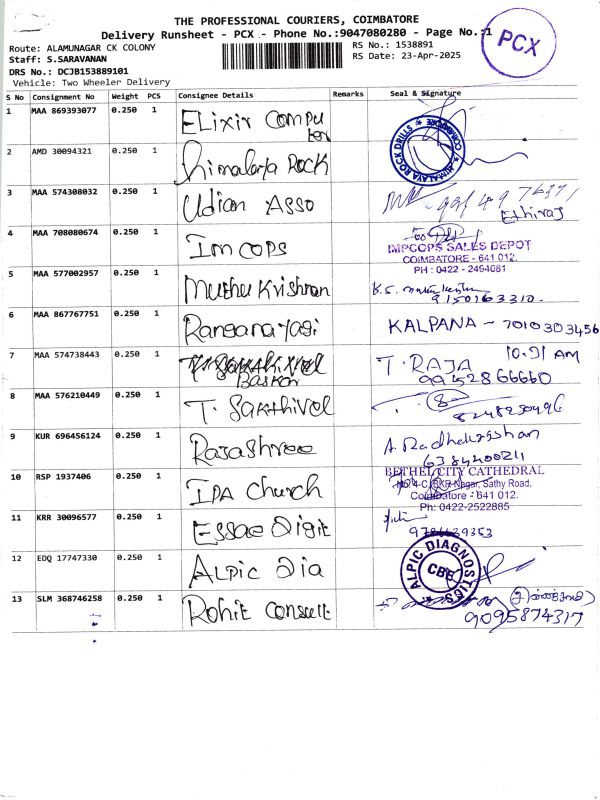 THE PROFESSIONAL COURIERS, COIMBATORE
Delivery Runsheet - PCX - Phone No.:9047080280 - Page No.:1
PCX
Route: ALAMUNAGAR CK COLONY
RS No.: 1538891
Staff: S.SARAVANAN
RS Date: 23-Apr-2025
DRS No.: DCJB153889101
Vehicle: Two Wheeler Delivery
S No Consignment No Weight PCS Consignee Details Remarks Seal & Signature
1 MAA 869393077 0.250 1 ELixir Compu
ter
2 AMD 30094321 0.250 1 himalaya Rock
HIMALAYA ROCK DRILLS
COIMBATORE
3 MAA 574308032 0.250 1 Udian Asso
Ethiraj
4 MAA 708080674 0.250 1 Imcops
IMPCOPS SALES DEPOT
COIMBATORE - 641 012.
PH : 0422 - 2494081
5 MAA 577002957 0.250 1 Muthu Krishnan
9150163310.
6 MAA 867767751 0.250 1 Ranganayagi KALPANA - 7010303456
7 MAA 574738443 0.250 1 Baskar T. RAJA 10.31 AM
9952866660
8 MAA 576210449 0.250 1 T. Sakthivel
8248230496
9 KUR 696456124 0.250 1 Rajashree A. Radhakrishnan
6384200211
10 RSP 1937406 0.250 1 IPA Church
BETHEL CITY CATHEDRAL
No. 4-C, SKR Nagar, Sathy Road.
Coimbatore - 641 012.
Ph: 0422-2522885
11 KRR 30096577 0.250 1 Essae Digit
12 EDQ 17747330 0.250 1 ALPIC Dia
ALPIC DIAGNOSTICS
CBE
13 SLM 368746258 0.250 1 Rohit Consult
9095874317